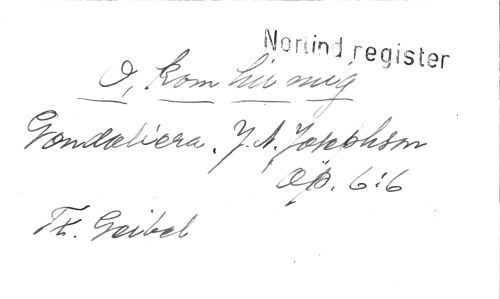 Nonlind register
O, kom hit mig
Gondoliera. J. A. Josephson
Op. 6:6
Tx. Geibel